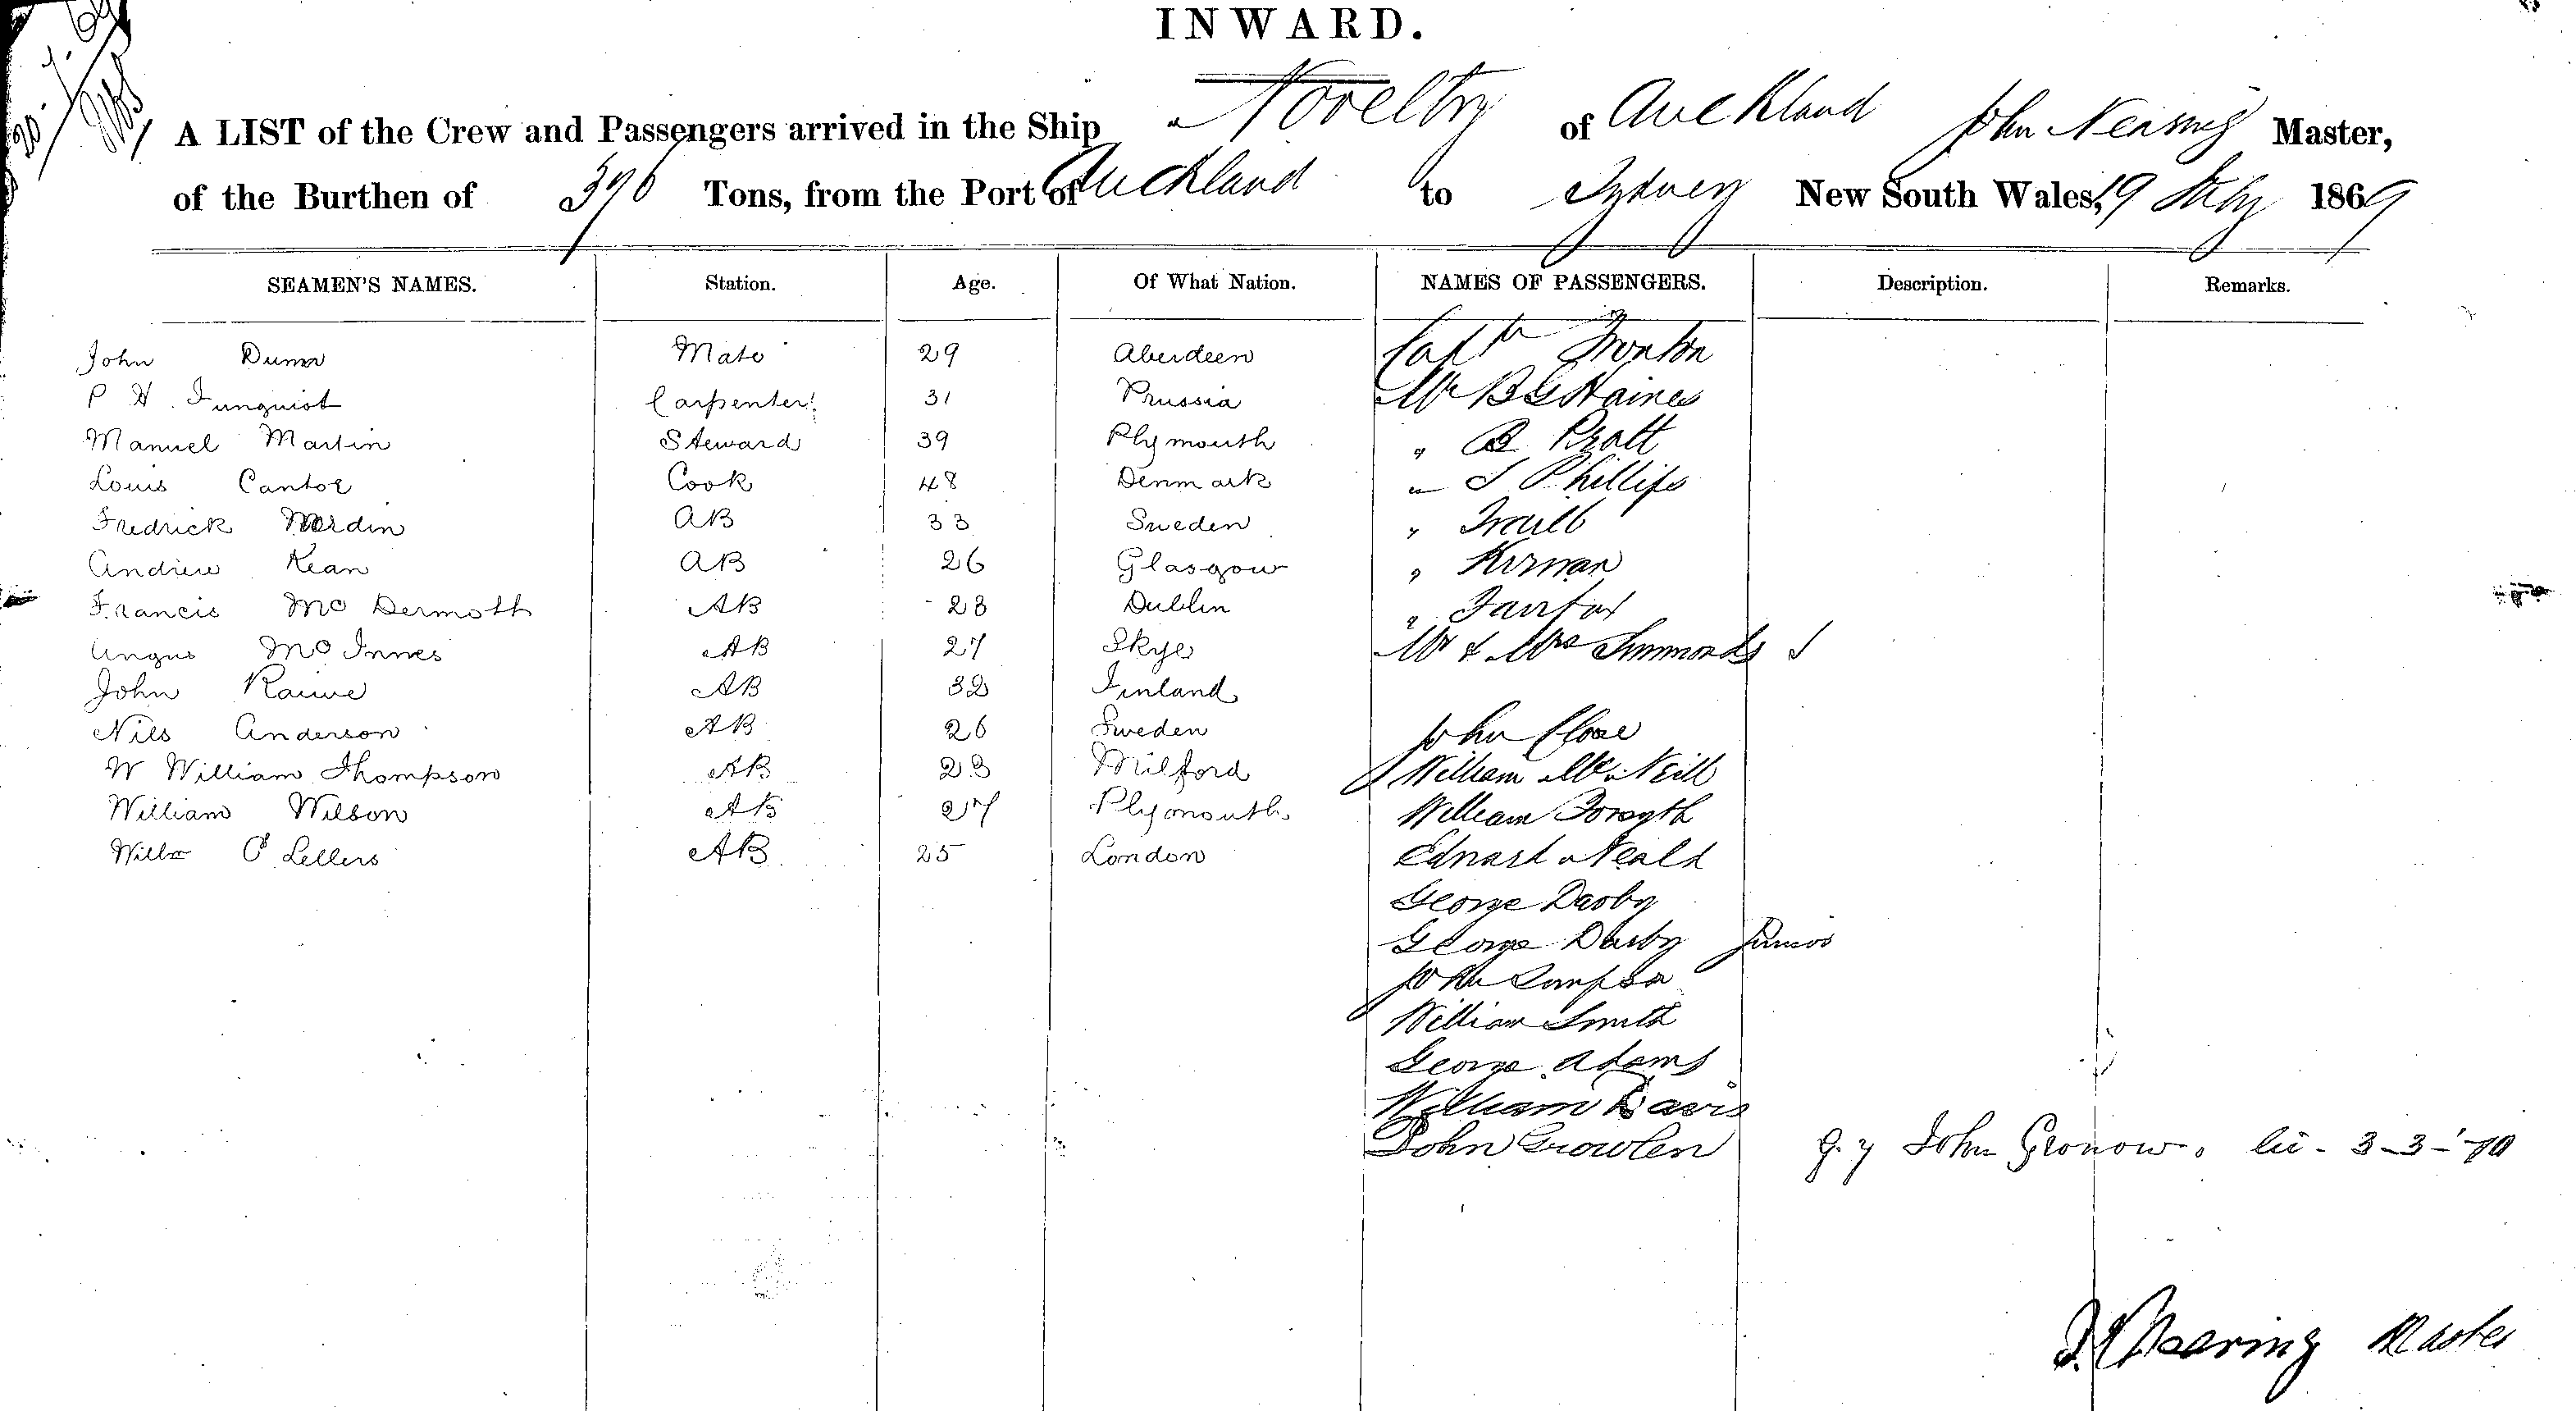 INWARD.
A LIST of the Crew and Passengers arrived in the Ship Novelty of Auckland John Nearing Master,
of the Burthen of 376 Tons, from the Port of Auckland to Sydney New South Wales, 19 July 1869
SEAMEN'S NAMES. Station. Age. Of What Nation. NAMES OF PASSENGERS. Description. Remarks.
John Dunn Mate 29 Aberdeen Captn
P H Junquist Carpenter 31 Prussia Mr B G Haines
Manuel Martin Steward 39 Plymouth " B Pratt
Louis Cantor Cook 48 Denmark " S Phillips
Fredrick Nordin AB 33 Sweden "
Andrew Kean AB 26 Glasgow " Kirwan
Francis McDermott AB 28 Dublin " Fairfax
Angus McInnes AB 27 Skye Mr & Mrs Simmonds
John AB 32 Finland
Nils Anderson AB 26 Sweden John Close
W William Thompson AB 23 Milford William McNeill
William Wilson AB 27 Plymouth William Forsyth
Willm O Lellers AB 25 London Edward Neald
George Darby
George Darby Junior
John Simpson
William Smith
George Adams
William Davis
John Growlen q.y John Gronow. lii - 3-3-'70
J. Nearing Master